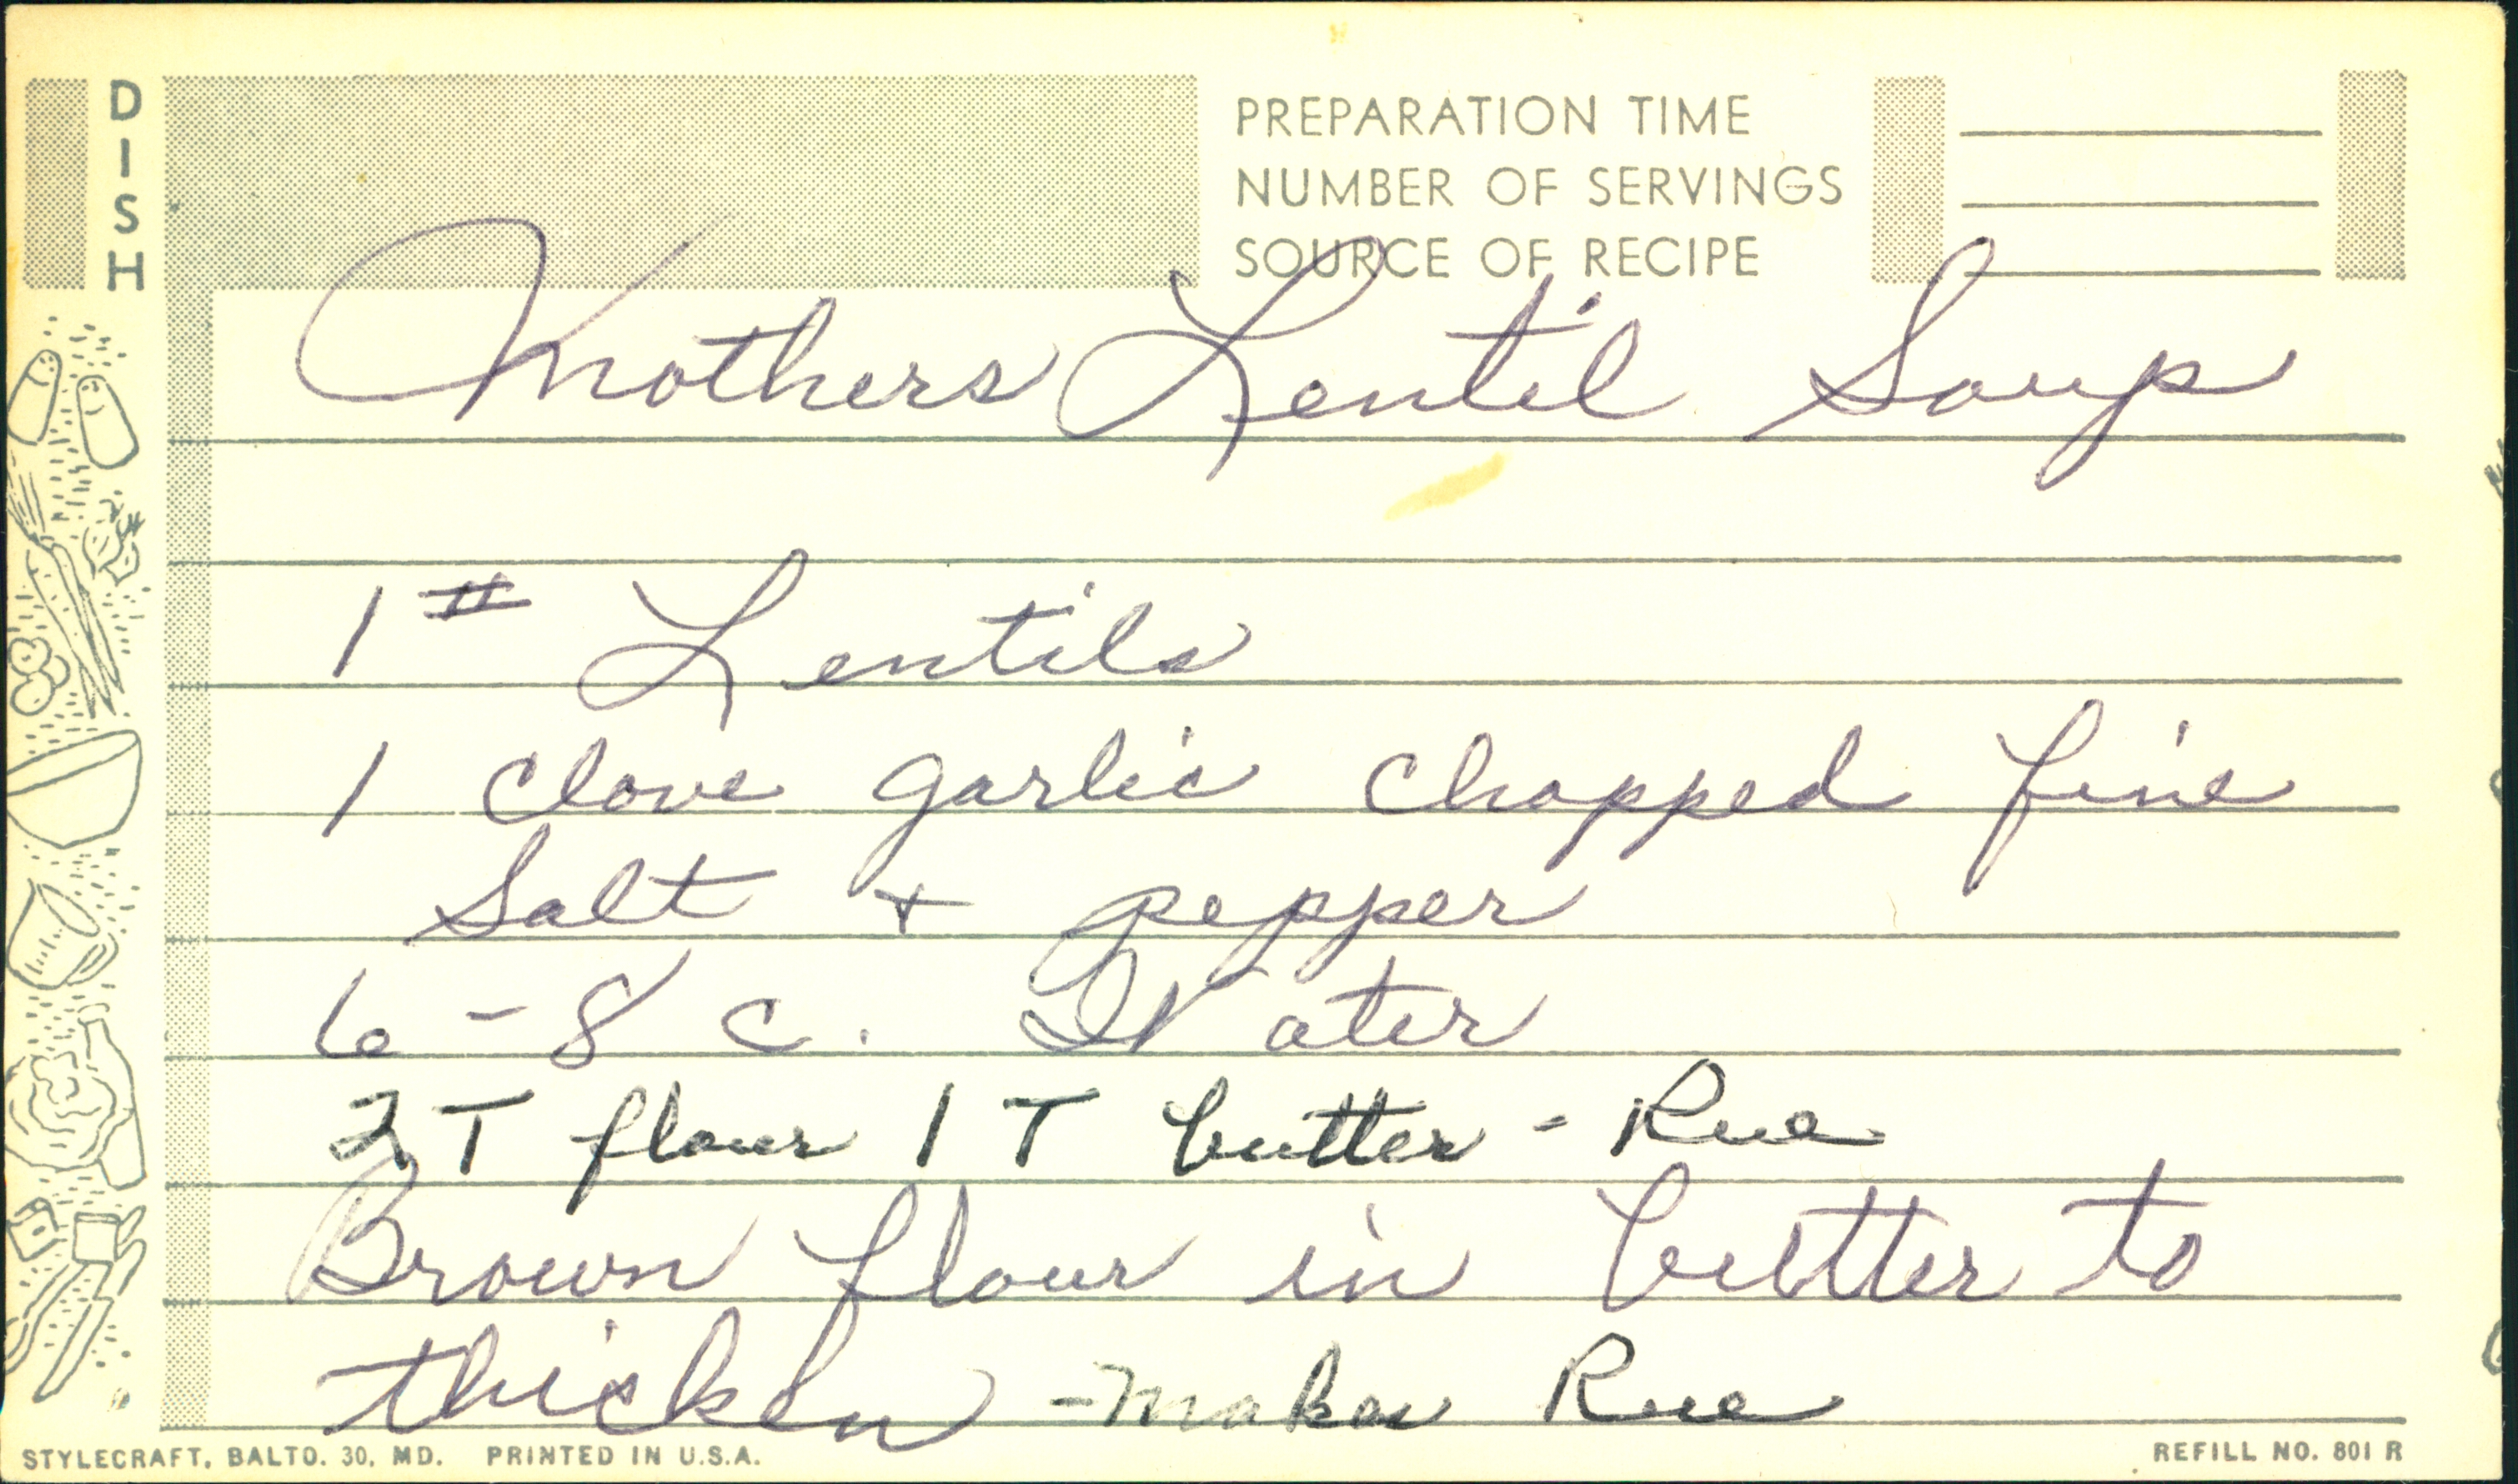 DISH
PREPARATION TIME
NUMBER OF SERVINGS
SOURCE OF RECIPE
Mothers Lentil Soup
1# Lentils
1 clove garlic chopped fine
Salt + pepper
6-8 c. Water
2 T flour 1 T butter - Rue
Brown flour in butter to
thicken - makes Rue
STYLECRAFT, BALTO. 30, MD. PRINTED IN U.S.A.
REFILL NO. 801 R